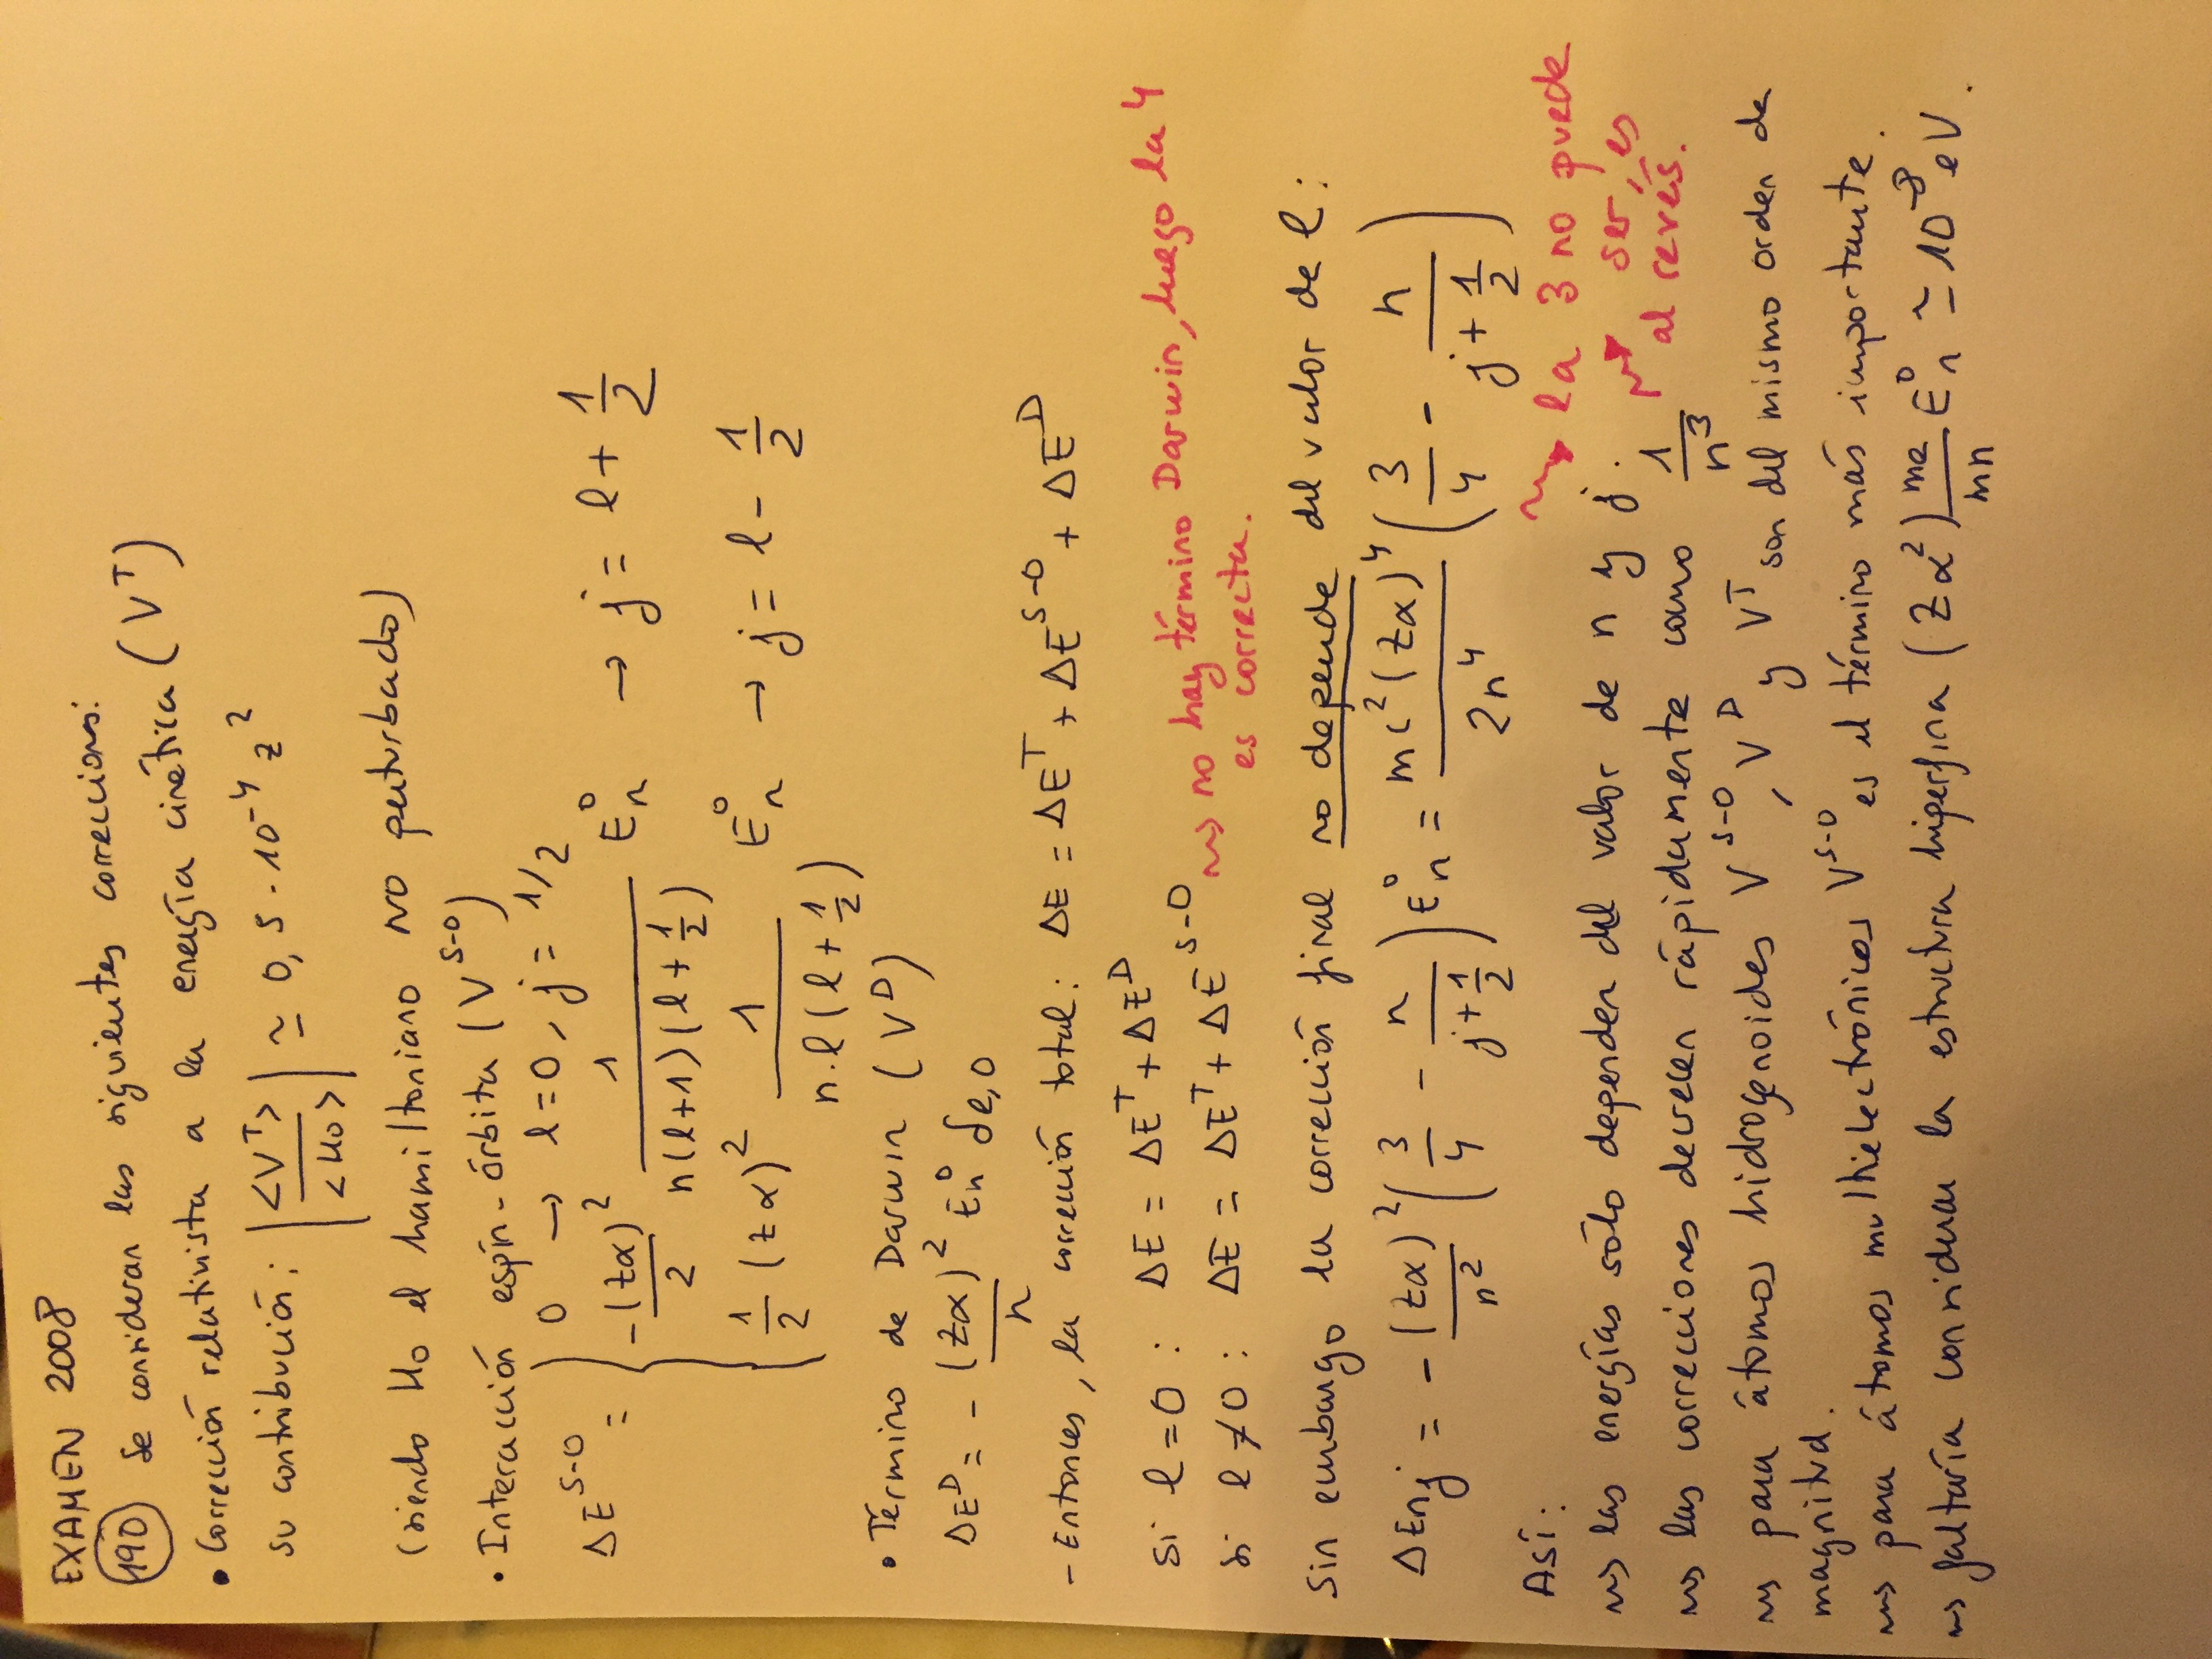 EXAMEN 2008
190 Se consideran las siguientes correcciones:
• Corrección relativista a la energía cinética (V^T)
su contribución: |<V^T>/<H0>| ≃ 0,5·10^-4 z^2
(siendo H0 el hamiltoniano NO perturbado)
• Interacción espín-órbita (V^S-O)
ΔE^S-O = { 0 → l=0, j= 1/2
-(Zα)^2/2 1/(n(l+1)(l+1/2)) E_n^0 → j= l+ 1/2
1/2 (Zα)^2 1/(n·l(l+1/2)) E_n^0 → j= l- 1/2
• Término de Darwin (V^D)
ΔE^D = - (Zα)^2/n E_n^0 δl,0
- Entonces, la correción total: ΔE = ΔE^T + ΔE^S-O + ΔE^D
Si l=0: ΔE = ΔE^T + ΔE^D
si l≠0: ΔE = ΔE^T + ΔE^S-O ⇝ no hay término Darwin, luego la 4
es correcta.
Sin embargo la corrección final no depende del valor de l:
ΔEnj = - (Zα)^2/n^2 (3/4 - n/(j+1/2)) E_n^0 = mc^2(Zα)^4/2n^4 (3/4 - n/(j+1/2))
Así:
⇝ la 3 no puede
ser, es
al revés.
⇝ las energías sólo dependen del valor de n y j.
⇝ las correcciones decrecen rápidamente como 1/n^3
⇝ para átomos hidrogenoides V^S-O, V^D y V^T son del mismo orden de
magnitud.
⇝ para átomos multielectrónicos V^S-O es el término más importante.
⇝ faltaría considerar la estructura hiperfina (Zα^2) me/mn E_n^0 ≃ 10^-8 eV.